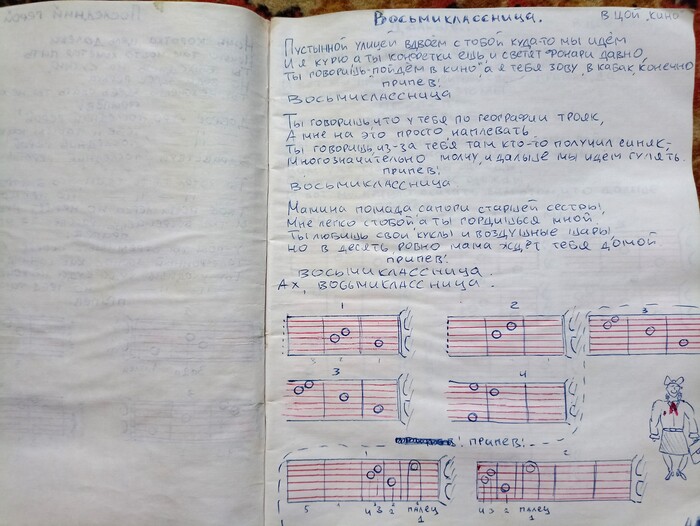 Последний герой
Восьмиклассница.
В Цой "Кино"
Пустынной улицей вдвоём с тобой куда-то мы идём
И я курю а ты конфетки ешь, и светят фонари давно,
Ты говоришь "пойдём в кино", а я тебя зову, в кабак, конечно
припев:
Восьмиклассница
Ты говоришь, что у тебя по географии трояк,
А мне на это просто наплевать
Ты говоришь, из-за тебя там кто-то получил синяк-
Многозначительно молчу, и дальше мы идем гулять.
припев:
Восьмиклассница
Мамина помада сапоги старшей сестры,
Мне легко с тобой а ты гордишься мной,
Ты любишь свои куклы и воздушные шары,
Но в десять ровно мама ждёт тебя домой
припев:
Восьмиклассница.
Ах, восьмиклассница.
1
2
3
3
4
припев!
1
2
5
4 3 2 палец 1
4 3 2 палец 1